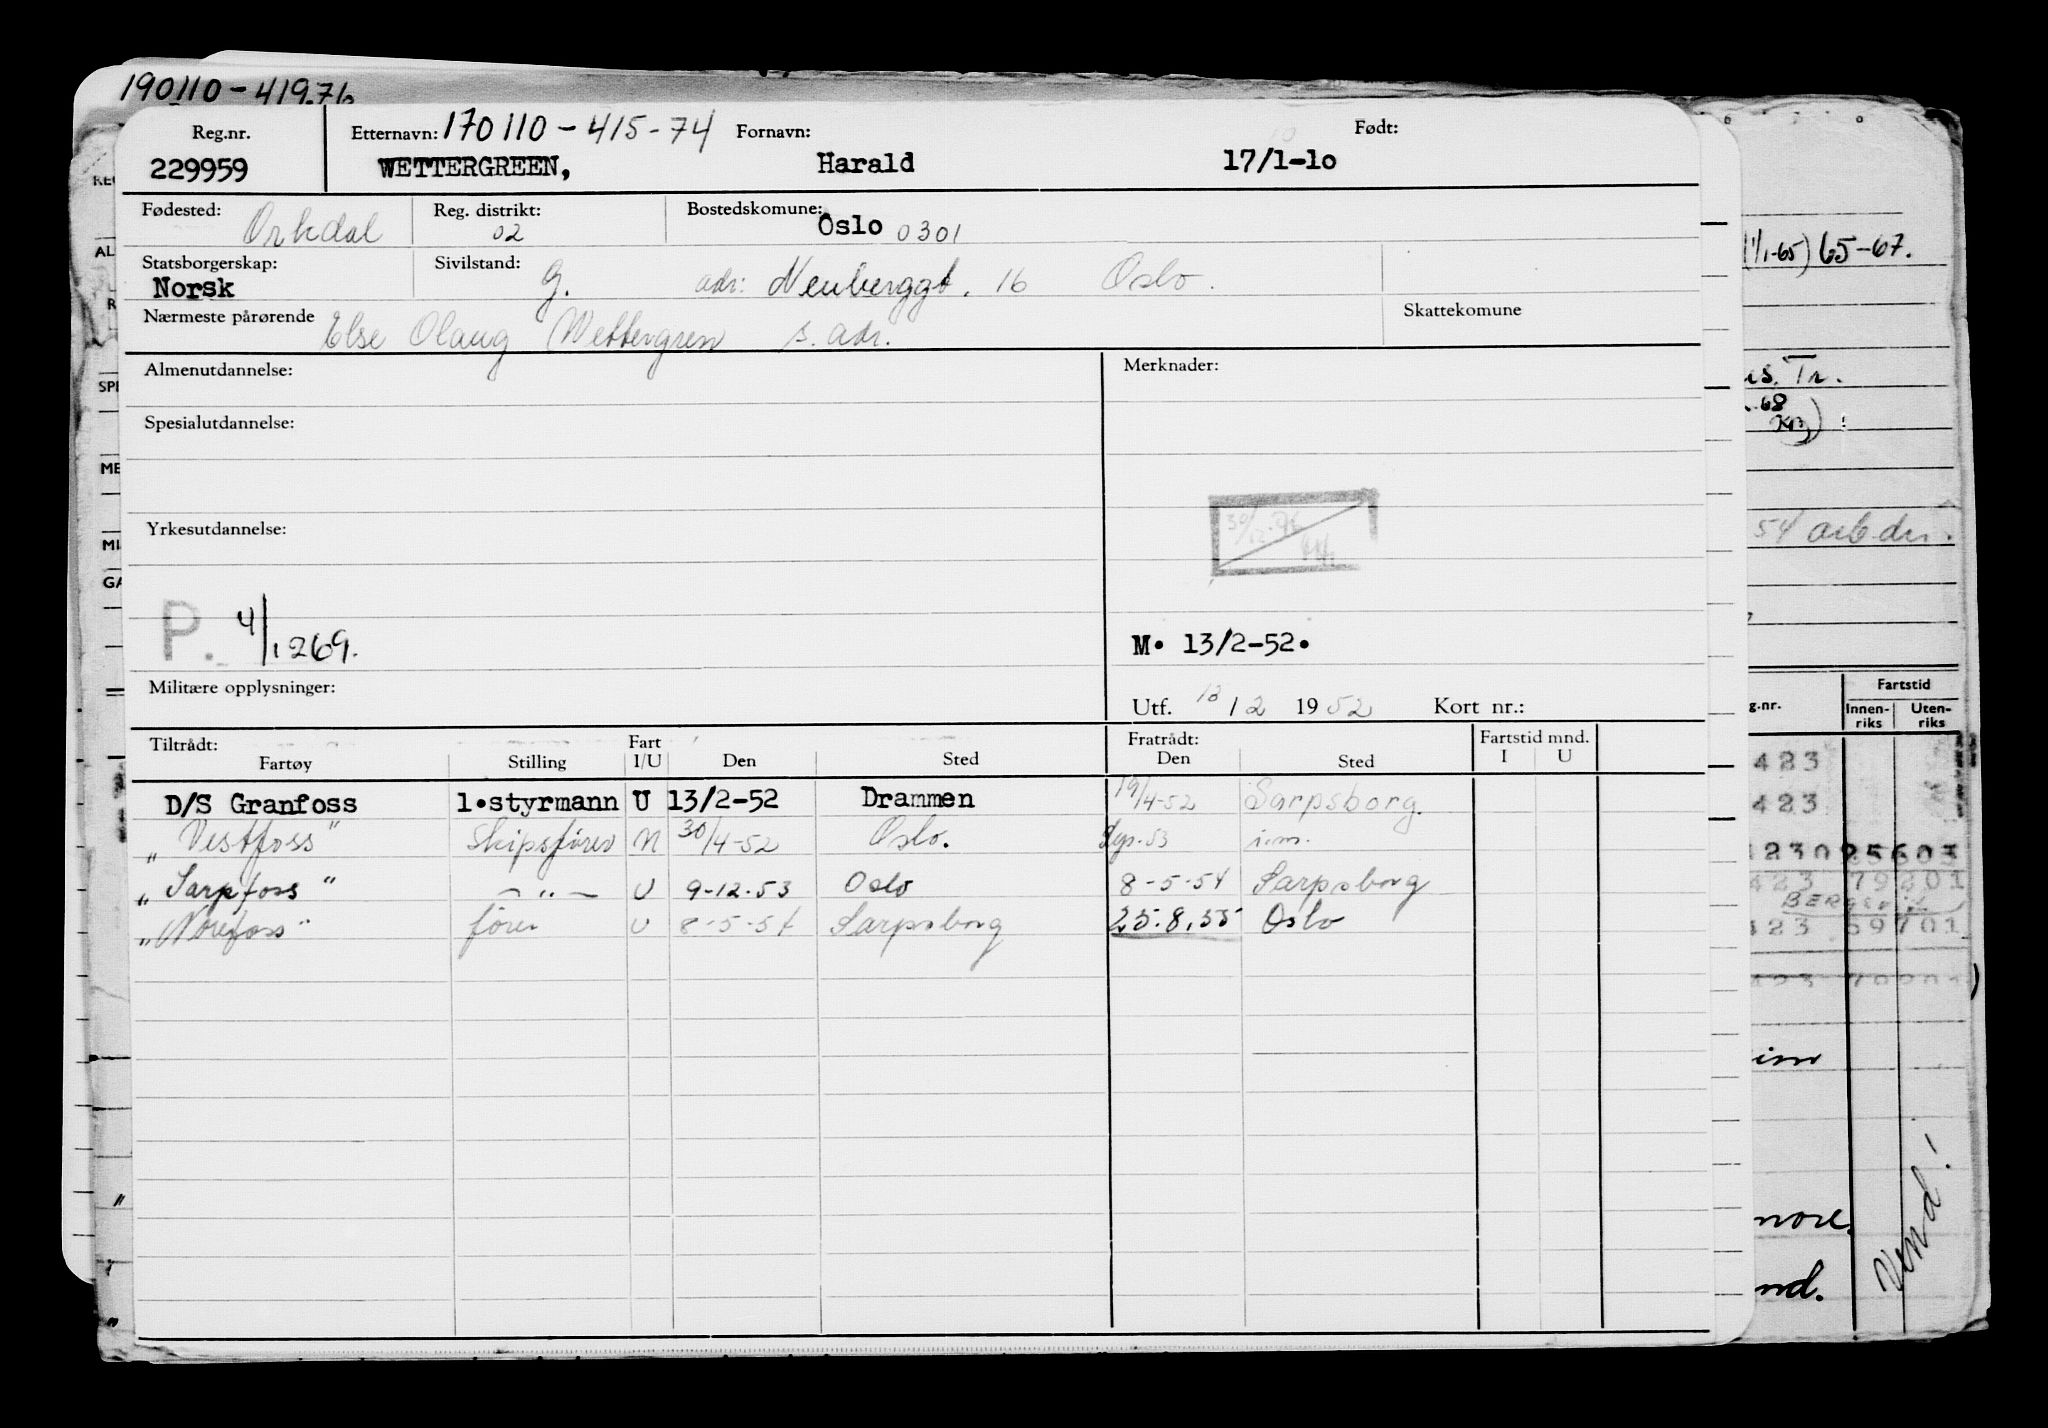 190110-419.76
Reg.nr. Etternavn: 170110-415-74 Fornavn: Født:
229959 WETTERGREEN, Harald 17/1-1o
Fødested: Orkdal Reg. distrikt: 02 Bostedskomune: Oslo 0301
Statsborgerskap: Norsk Sivilstand: G. adr: Neuberggt. 16 Oslo.
Nærmeste pårørende Else Olaug Wettergren s. adr. Skattekomune
Almenutdannelse: Merknader:
Spesialutdannelse:
Yrkesutdannelse:
P. 4/1269. M. 13/2-52.
Militære opplysninger: Utf. 13/2 1952 Kort nr.:
Tiltrådt: Fart Fratrådt: Fartstid mnd.
Fartøy Stilling I/U Den Sted Den Sted I U
D/S Granfoss 1.styrmann U 13/2-52 Drammen 19/4-52 Sarpsborg.
" Vestfoss" Skipsfører N 30/4-52 Oslo. 53
" Sarpfoss " - " - U 9-12-53 Oslo 8-5-54 Sarpsborg
" Norefoss" fører U 8-5-54 Sarpsborg 25.8.55 Oslo
(1/1-65) 65-67.
Tr.
68
54 arb.dr.
Fartstid
g.nr. Innen-riks Uten-riks
423
423
423025603
423 79201
BERGSVIK
423 59701
Vend!